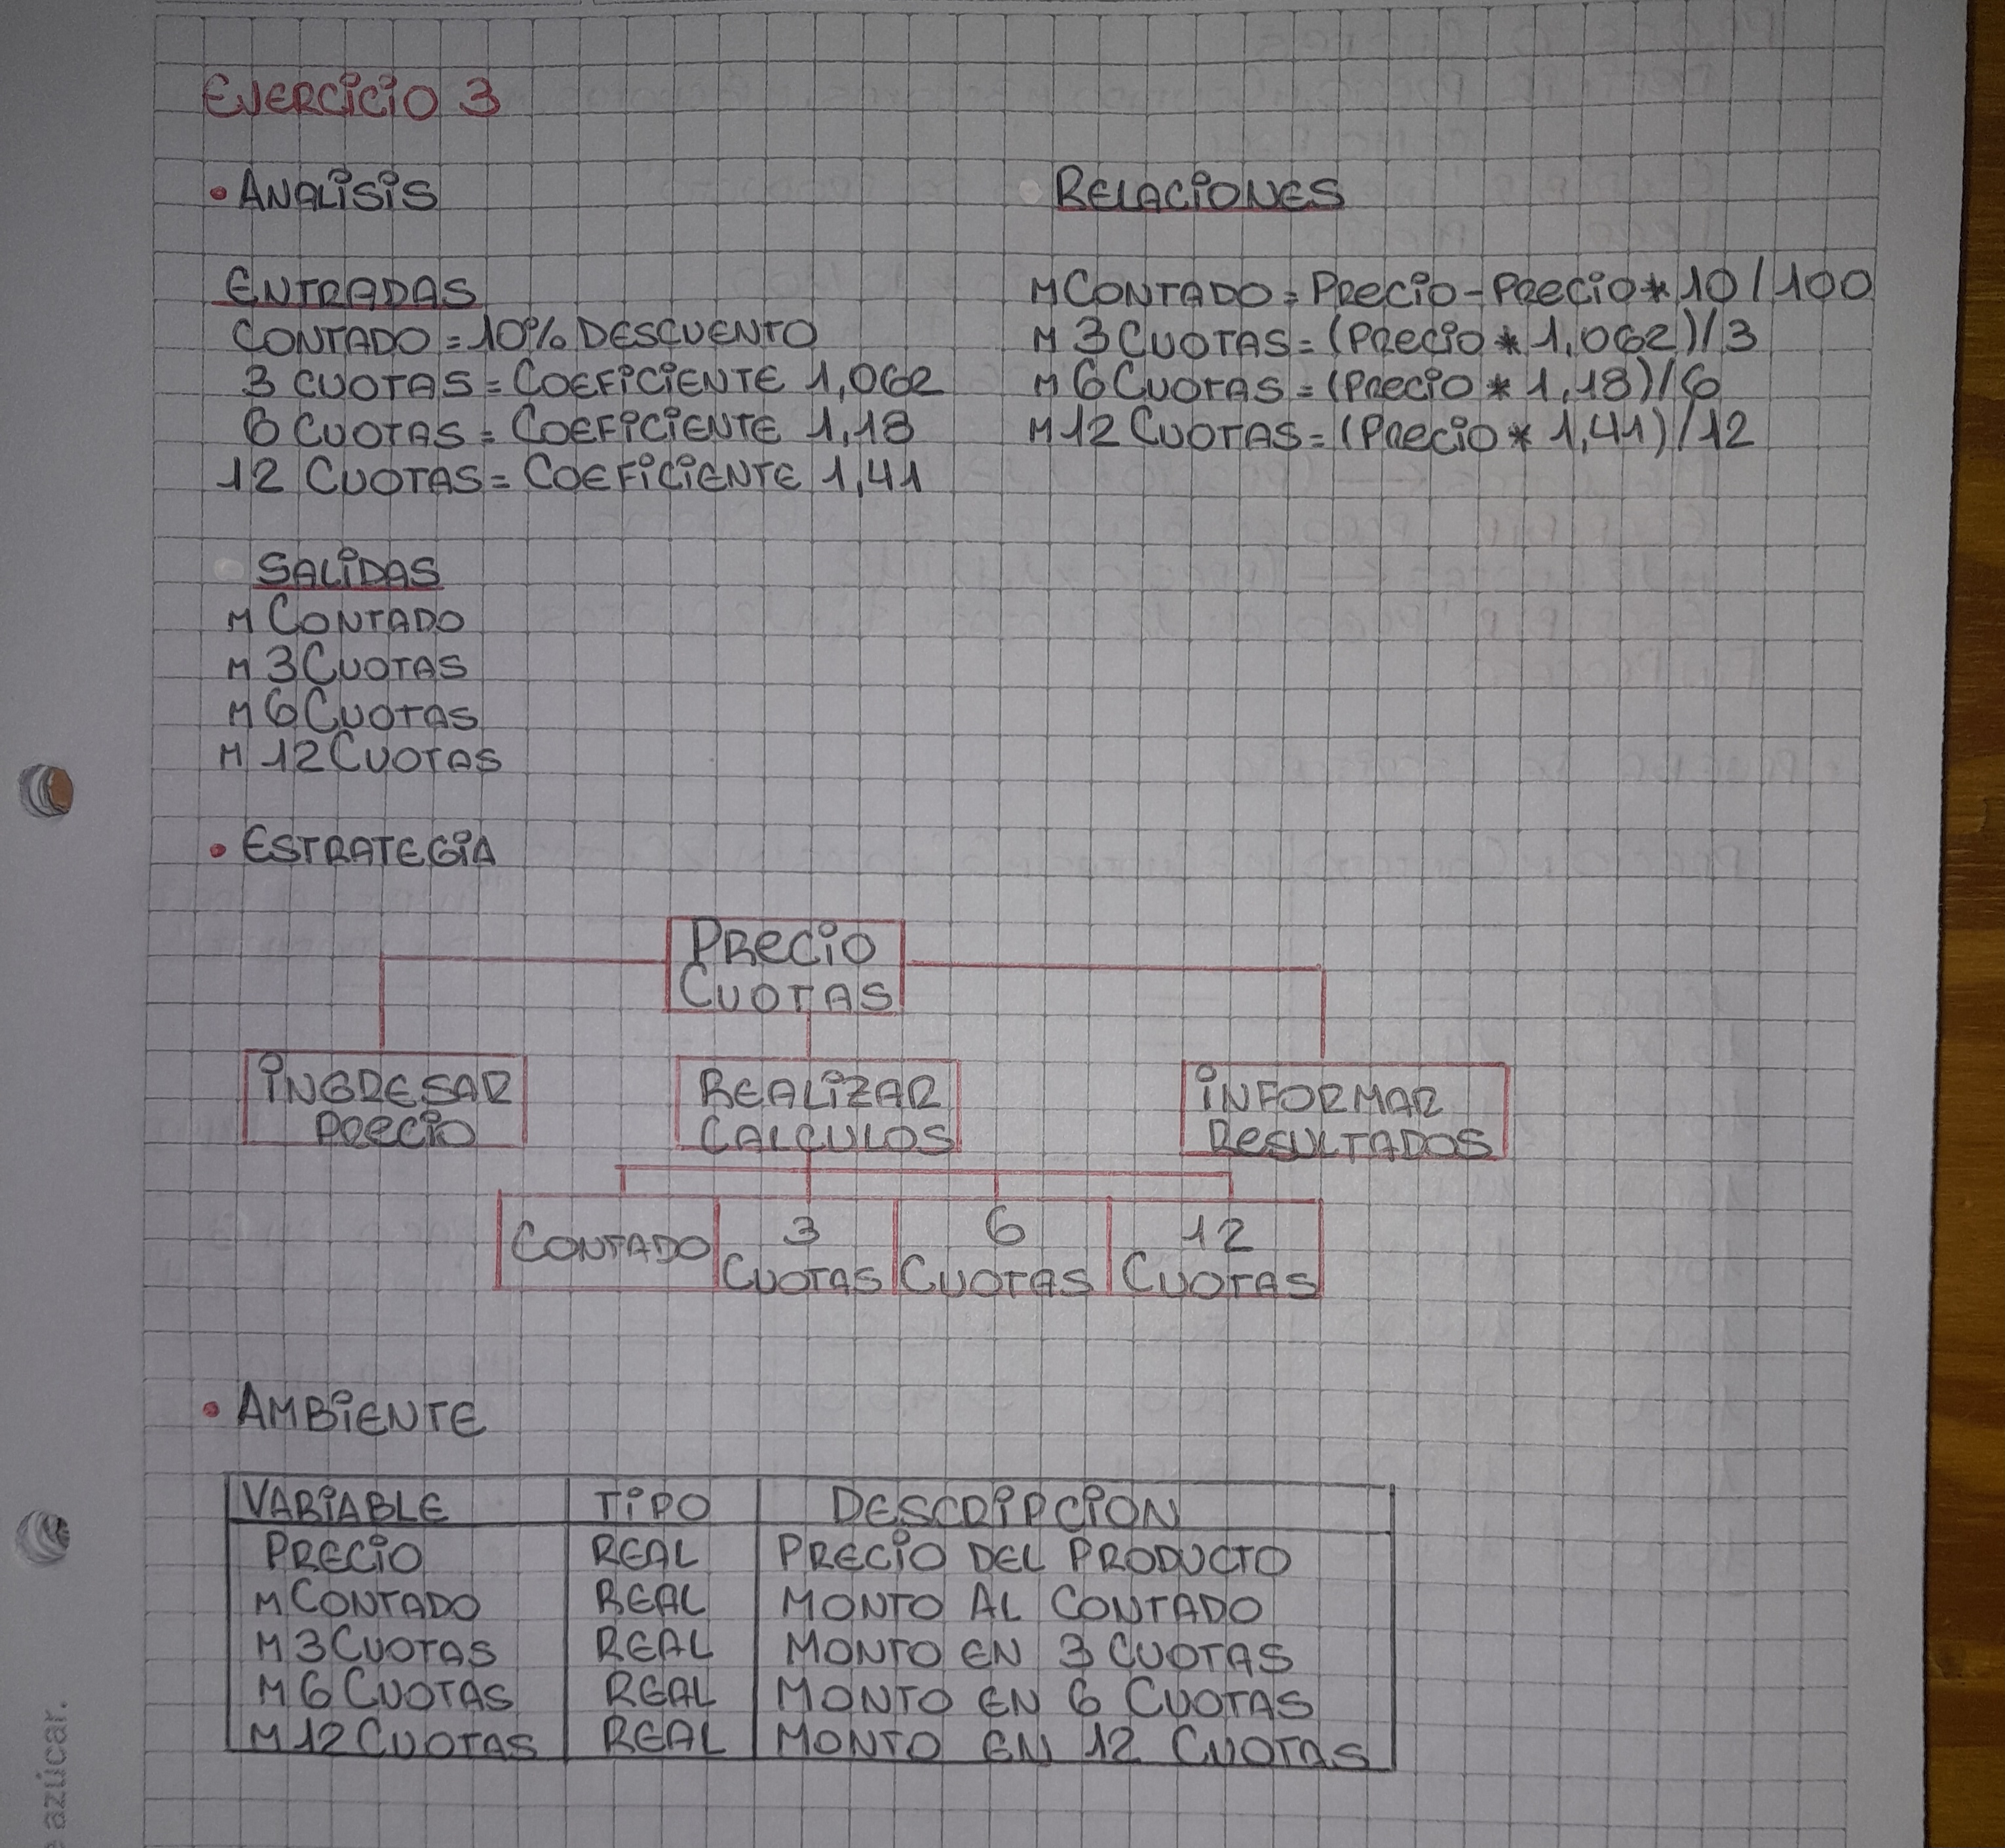 EJERCICIO 3
• ANALISIS
ENTRADAS
CONTADO = 10% DESCUENTO
3 CUOTAS = COEFICIENTE 1,062
6 CUOTAS = COEFICIENTE 1,18
12 CUOTAS = COEFICIENTE 1,41
RELACIONES
M CONTADO = PRECIO - PRECIO * 10 / 100
M 3 CUOTAS = (PRECIO * 1,062) / 3
M 6 CUOTAS = (PRECIO * 1,18) / 6
M 12 CUOTAS = (PRECIO * 1,41) / 12
SALIDAS
M CONTADO
M 3 CUOTAS
M 6 CUOTAS
M 12 CUOTAS
• ESTRATEGIA
PRECIO
CUOTAS
INGRESAR
PRECIO
REALIZAR
CALCULOS
INFORMAR
RESULTADOS
CONTADO
3
CUOTAS
6
CUOTAS
12
CUOTAS
• AMBIENTE
VARIABLE TIPO DESCRIPCION
PRECIO REAL PRECIO DEL PRODUCTO
M CONTADO REAL MONTO AL CONTADO
M 3 CUOTAS REAL MONTO EN 3 CUOTAS
M 6 CUOTAS REAL MONTO EN 6 CUOTAS
M 12 CUOTAS REAL MONTO EN 12 CUOTAS
azúcar.